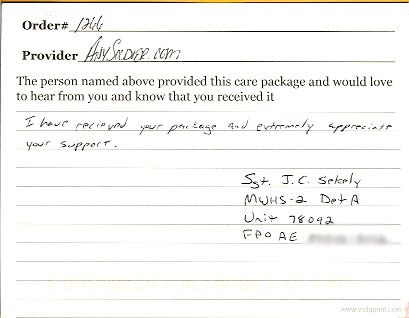 Order# 1266
Provider AnySoldier.com
The person named above provided this care package and would love
to hear from you and know that you received it
I have recieved your package and extremely appreciate
your support.
Sgt. J.C. Sekely
MWHS-2 Det A
Unit 78042
FPO AE
www.vistaprint.com